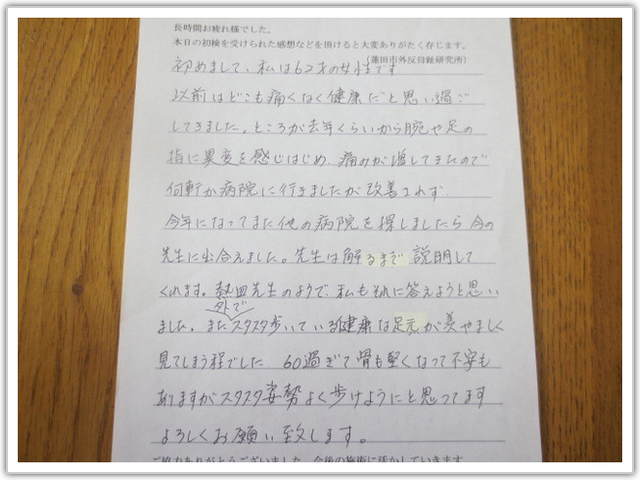 長時間お疲れ様でした。
本日の初検を受けられた感想などを頂けると大変ありがたく存じます。
(蓮田市外反母趾研究所)
初めまして、私は62才の女性です
以前はどこも痛くなく健康だと思い過ご
してきました。ところが去年くらいから腕や足の
指に異変を感じはじめ、痛みが増してきたので
何軒か病院に行きましたが改善されず
今年になってまた他の病院を探しましたら今の
先生に出会えました。先生は解るまで説明して
くれます。熱血先生のようで、私もそれに答えようと思い
外で
ました。またスタスタ歩いている健康な足元が羨やましく
見てしまう程でした 60過ぎて骨も堅くなって不安も
ありますがスタスタ姿勢よく歩けようにと思ってます
よろしくお願い致します。
ご協力ありがとうございました。今後の施術に活かしていきます。